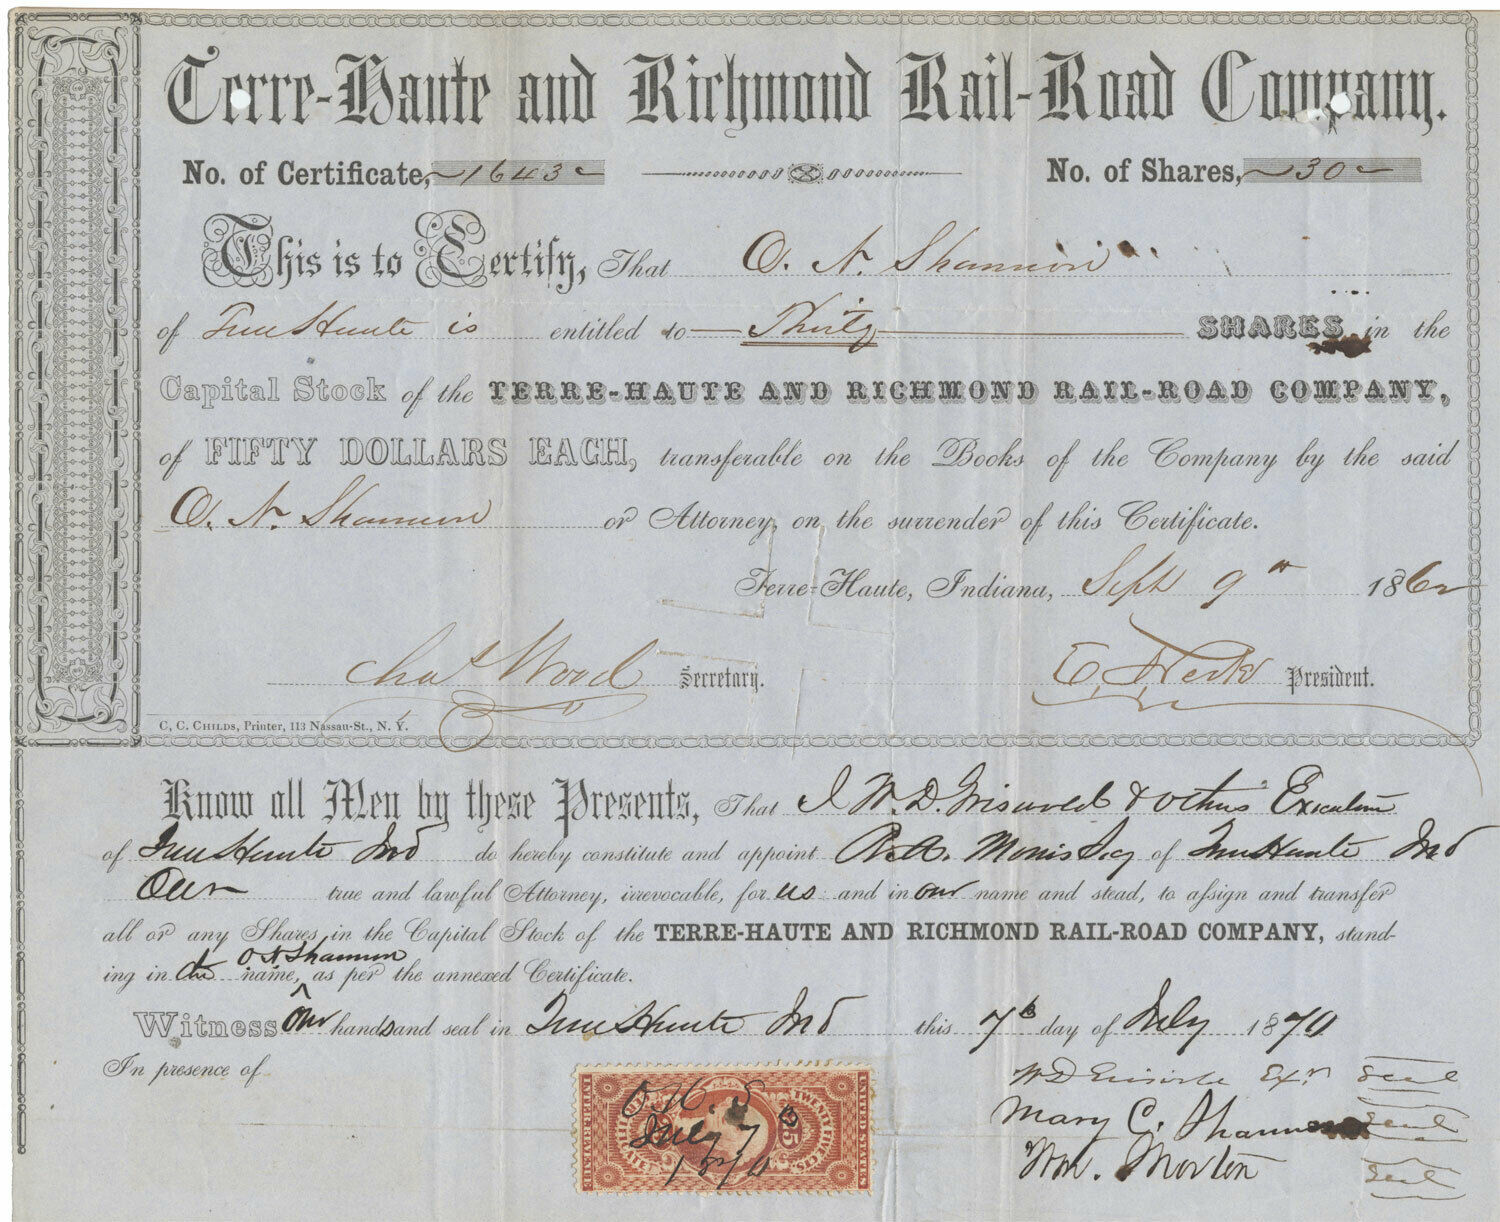 Terre-Haute and Richmond Rail-Road Company.
No. of Certificate, 1643 No. of Shares, 30
This is to Certify, That O. N. Shannon
of Terre Haute is entitled to Thirty SHARES in the
Capital Stock of the TERRE-HAUTE AND RICHMOND RAIL-ROAD COMPANY,
of FIFTY DOLLARS EACH, transferable on the Books of the Company by the said
O. N. Shannon or Attorney, on the surrender of this Certificate.
Terre-Haute, Indiana, Sept 9th 1862
Chas Wood Secretary. President.
C. C. CHILDS, Printer, 113 Nassau-St., N. Y.
Know all Men by these Presents, That I W. D. Griswold & others Executors
of Terre Haute Ind do hereby constitute and appoint R. A. Morris Secy of Terre Haute Ind
Our true and lawful Attorney, irrevocable, for us and in our name and stead, to assign and transfer
all or any Shares in the Capital Stock of the TERRE-HAUTE AND RICHMOND RAIL-ROAD COMPANY, stand-
O N Shannon
ing in the name, as per the annexed Certificate.
Witness our hands and seal in Terre Haute Ind this 7th day of July 1870
In presence of
W D Griswold Exr Seal
Mary C. Shannon Seal
Wm. Morton Seal
INTER. REV. TWENTY FIVE CTS. UNITED STATES
25
O. N. S
July 7
1870